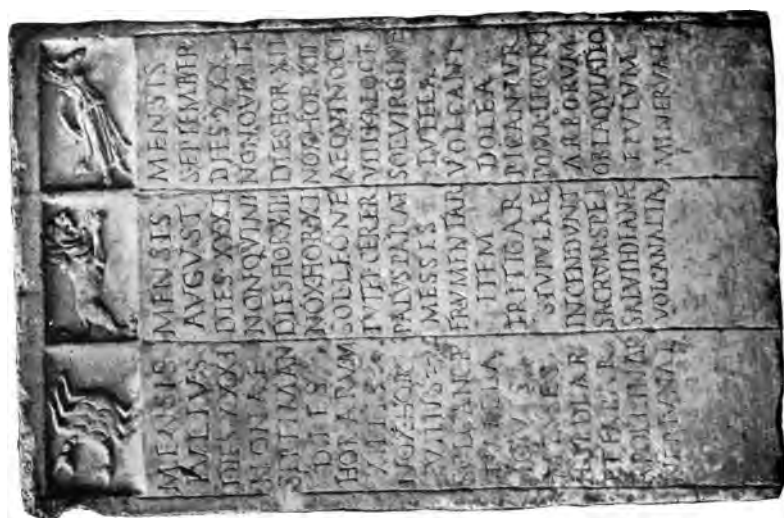 MENSIS
IVLIVS
DIES XXXI
NONAE
SEPTIMAN
DIES
HORARVM
XIIII S
NOX HOR
VIIII S
SOL CANCR
TVTELA
IOVIS
HORDIAR
ET FABAR
APOLLINAR
NEPTVNAL
MENSIS
AVGVST
DIES XXXI
NON QVINT
DIES HOR XIII
NOX HOR XI
SOL LEONE
TVTEL CERER
PALVS PARAT
MESSIS
FRVMENTAR
ITEM
TRITICAR
STVPVLAE
INCENDVNT
SACRVM SPEI
SALVTI DIANE
VOLCANALIA
MENSIS
SEPTEMBER
DIES XXX
NON QVINT
DIES HOR XII
NOX HOR XII
AEQVINOCT
VIII KAL OCT
SOL VIRGINE
TVTELA
VOLCANI
DOLEA
PICANTVR
POMA LEGVNT
ARBORVM
OBLAQVIATIO
EPVLVM
MINERVAE